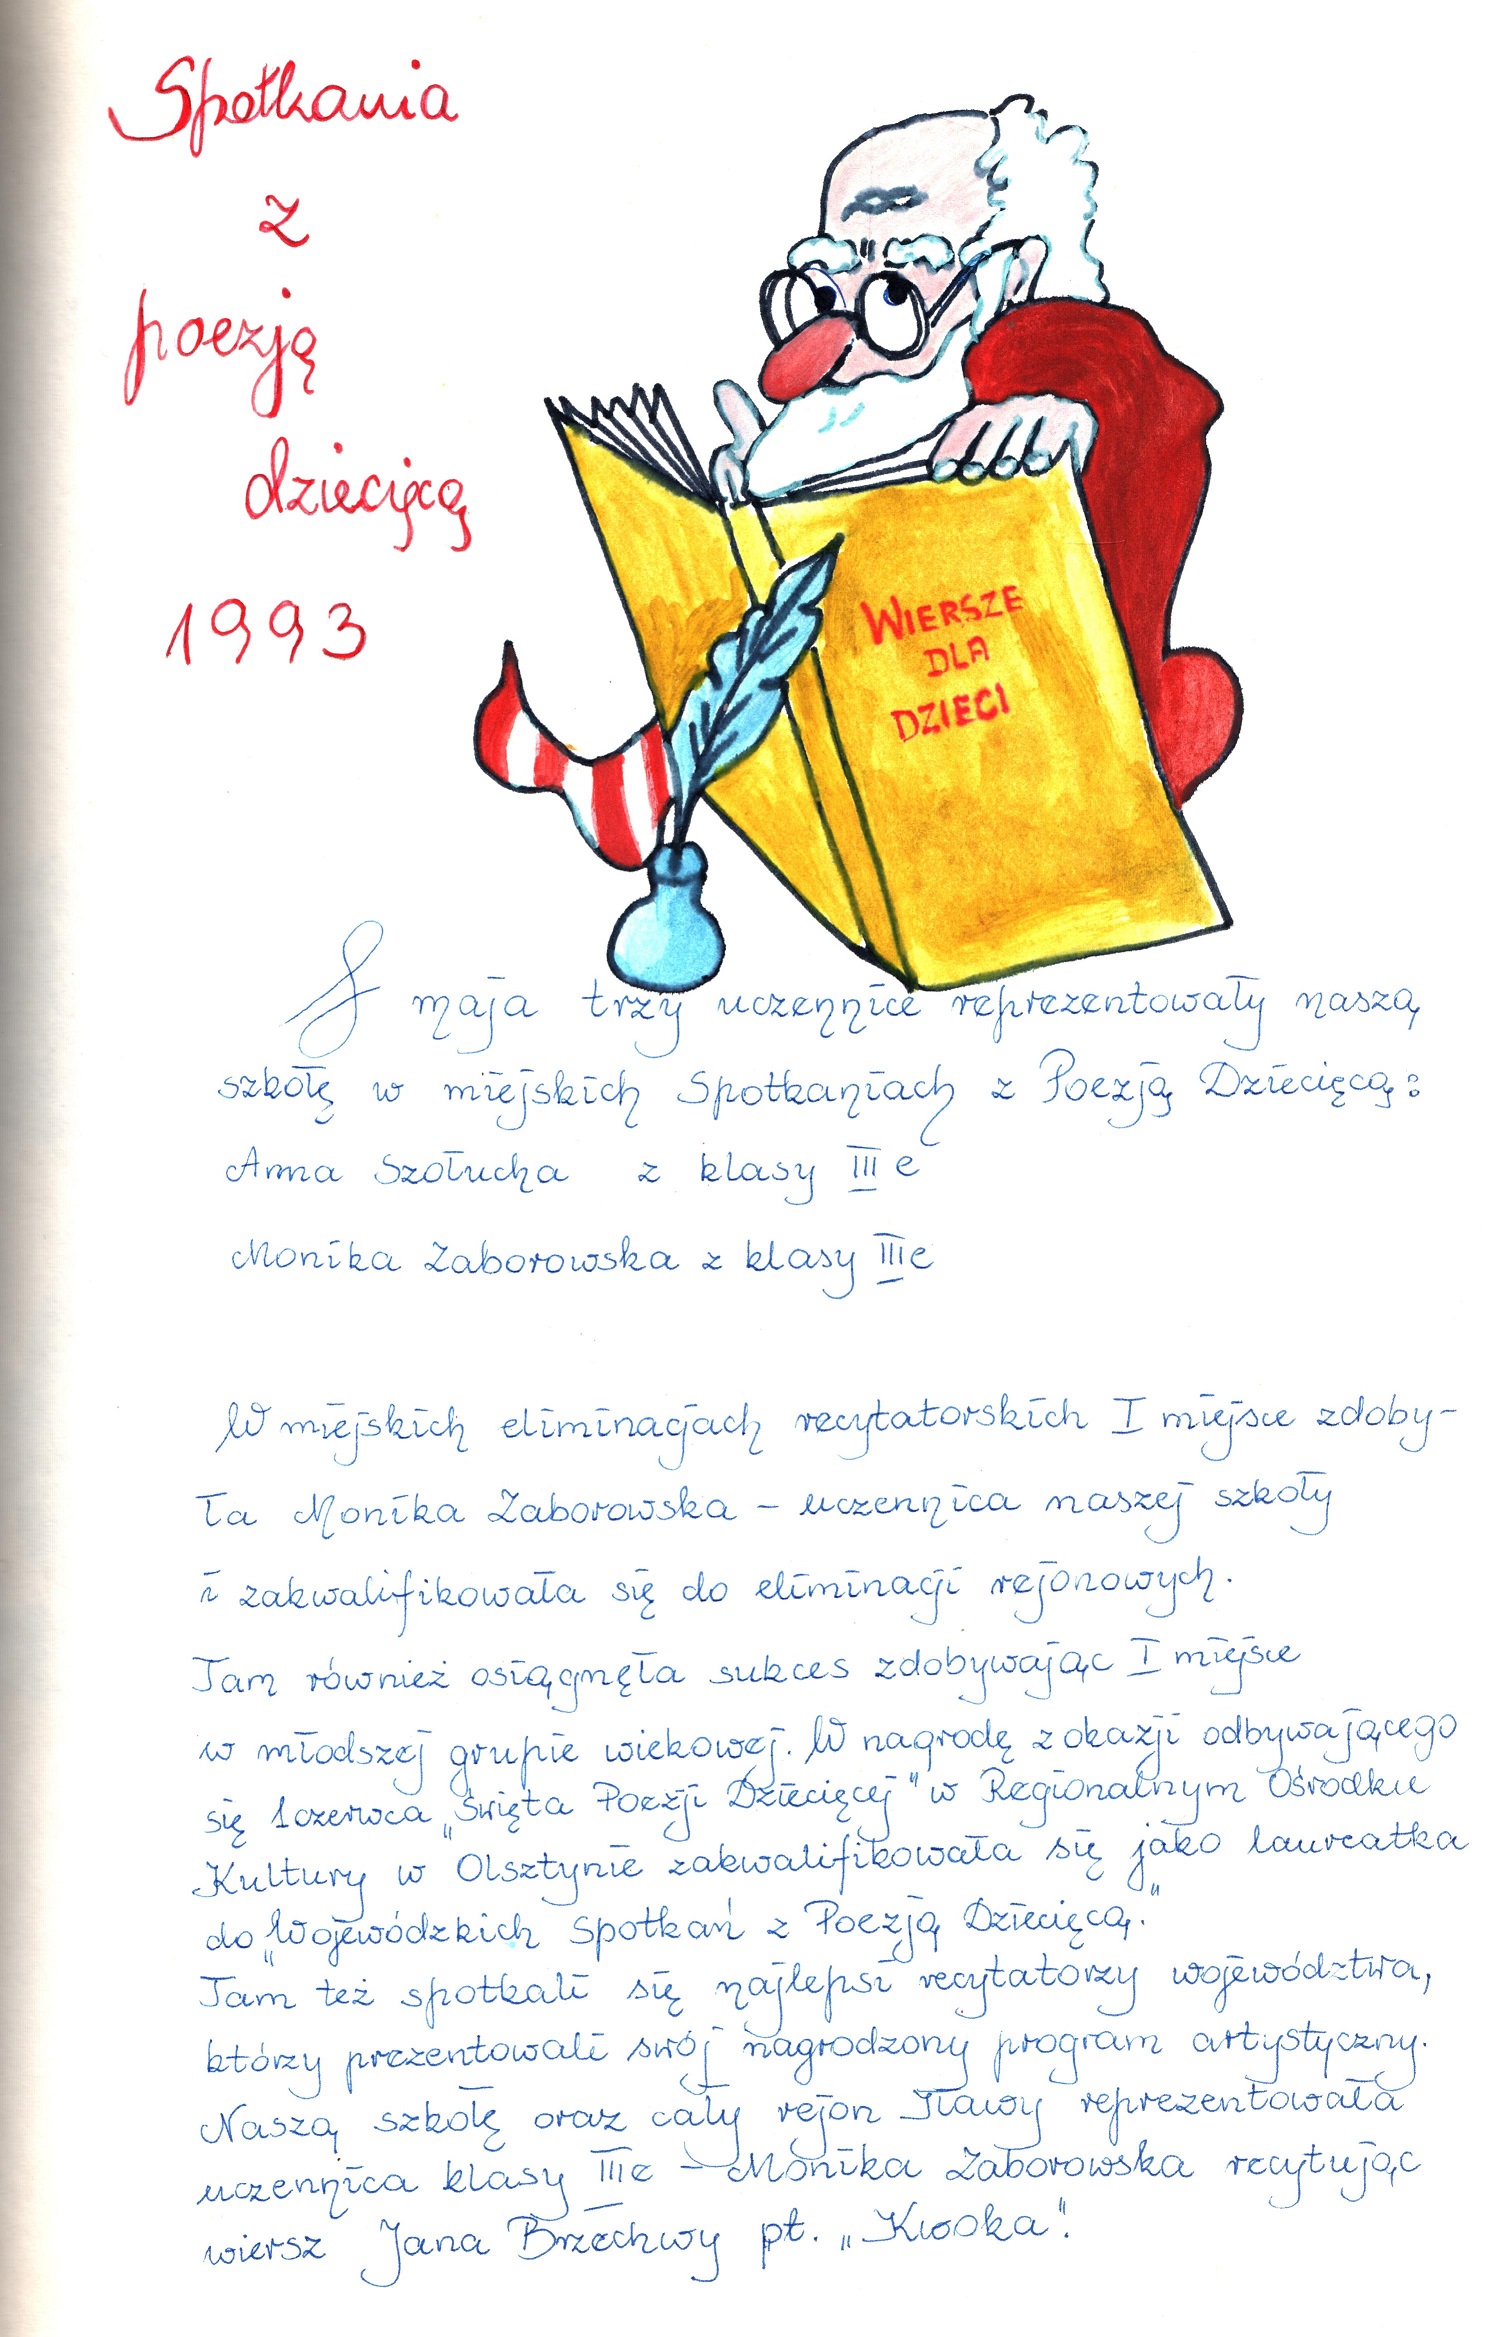 Spotkania
z
poezją
dziecięcą
1993
WIERSZE
DLA
DZIECI
maja trzy uczennice reprezentowały naszą
szkołę w miejskich Spotkaniach z Poezją Dziecięcą:
Anna Szołucha z klasy III e
Monika Zaborowska z klasy IIIe
W miejskich eliminacjach recytatorskich I miejsce zdoby-
ła Monika Zaborowska - uczennica naszej szkoły
i zakwalifikowała się do eliminacji rejonowych.
Tam również osiągnęła sukces zdobywając I miejsce
w młodszej grupie wiekowej. W nagrodę z okazji odbywającego
się 1 czerwca „Święta Poezji Dziecięcej" w Regionalnym Ośrodku
Kultury w Olsztynie zakwalifikowała się jako laureatka
do „Wojewódzkich Spotkań z Poezją Dziecięcą."
Tam też spotkali się najlepsi recytatorzy województwa,
którzy prezentowali swój nagrodzony program artystyczny.
Naszą szkołę oraz cały rejon Iławy reprezentowała
uczennica klasy IIIe - Monika Zaborowska recytując
wiersz Jana Brzechwy pt. „Kwoka".